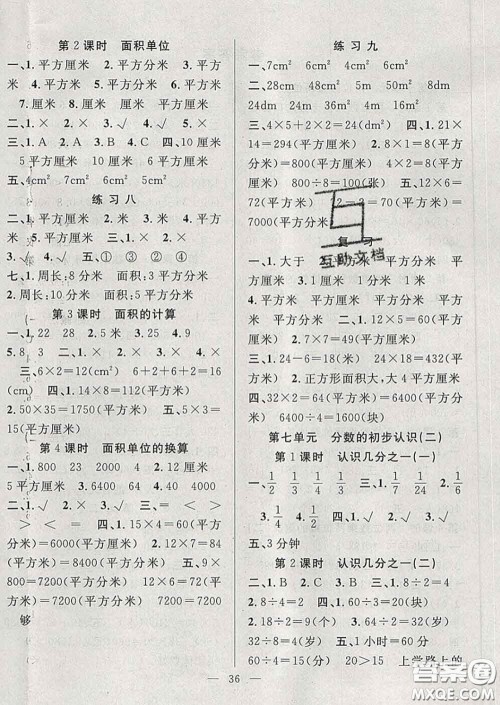 第2课时 面积单位
一、1.平方厘米 2.平方分米 3.平方
米 4.平方厘米 5.平方米 6.平方分米
7.厘米 8.厘米 平方厘米
二、1.× 2.× 3.√ 4.√ 5.×
三、1.A 2.A 3.B 4.C 四、10厘米
5平方厘米 6平方厘米 8平方厘米
五、4cm² 7cm² 6cm²
练习八
二、1.× 2.√ 3.√ 4.√
五、① ③ ② ④
七、1.周长:8分米 面积:3平方分米
2.周长:10厘米 面积:5平方厘米
第3课时 面积的计算
一、1.22 28 2.4 3.24 4.9
5.8 3 二、1.× 2.× 3.√ 4.√
三、6×2=12(cm²) 6+2+6+2=16
(cm) 四、1.14×8=112(平方厘米)
2.50×35=1750(平方米) 五、25平方
厘米
第4课时 面积单位的换算
一、1.800 23 2000 4 2.厘米
平方厘米 平方分米 平方米 平方分米
二、1.√ 2.× 3.× 三、1.= < =
> < < = 四、1.15×4=60(平方分
米)=6000(平方厘米) 2.12×7=84(平
方分米)=8400(平方厘米) 五、9×
80=7200(平方厘米) 12×6=72(平方
分米)=7200(平方厘米) 7200=7200
够
练习九
一、1.7cm² 6cm² 7cm² 7cm²
2.20cm 16m 52m 28dm
24dm 16m 64m² 40dm²
三、4×5+2×2=24(dm²) 四、1.21×
14=294(平方厘米) 2.8×1=8(平方
分米)=800(平方厘米) 800÷8=100(张) 五、6×12=
72(平方厘米)
7000(平方厘米)
复习
互助文档
二、1.√ 2.× 3.×
三、1.24-6=18(平方分米) 15×4=60(平方分
米) 2.正方形面积大,大4平方厘米
四、32×2=64(平方分米)=
6400(平方厘米) 6400÷4=1600(块)
第七单元 分数的初步认识(二)
第1课时 认识几分之一(一)
一、1/4 1/3 1/4 1/2 1/4 1/6
三、1.× 2.√ 3.× 4.√
五、3分钟
第2课时 认识几分之一(二)
一、1.B 2.B 二、1.8÷2=4
2.8÷4=2 三、6÷3=2 四、64÷
2=32(岁) 32÷1=32(岁) 五、1小时=60分
60÷4=15(分) 20>15 上学路上的
36
答案圈
MXQE.COM